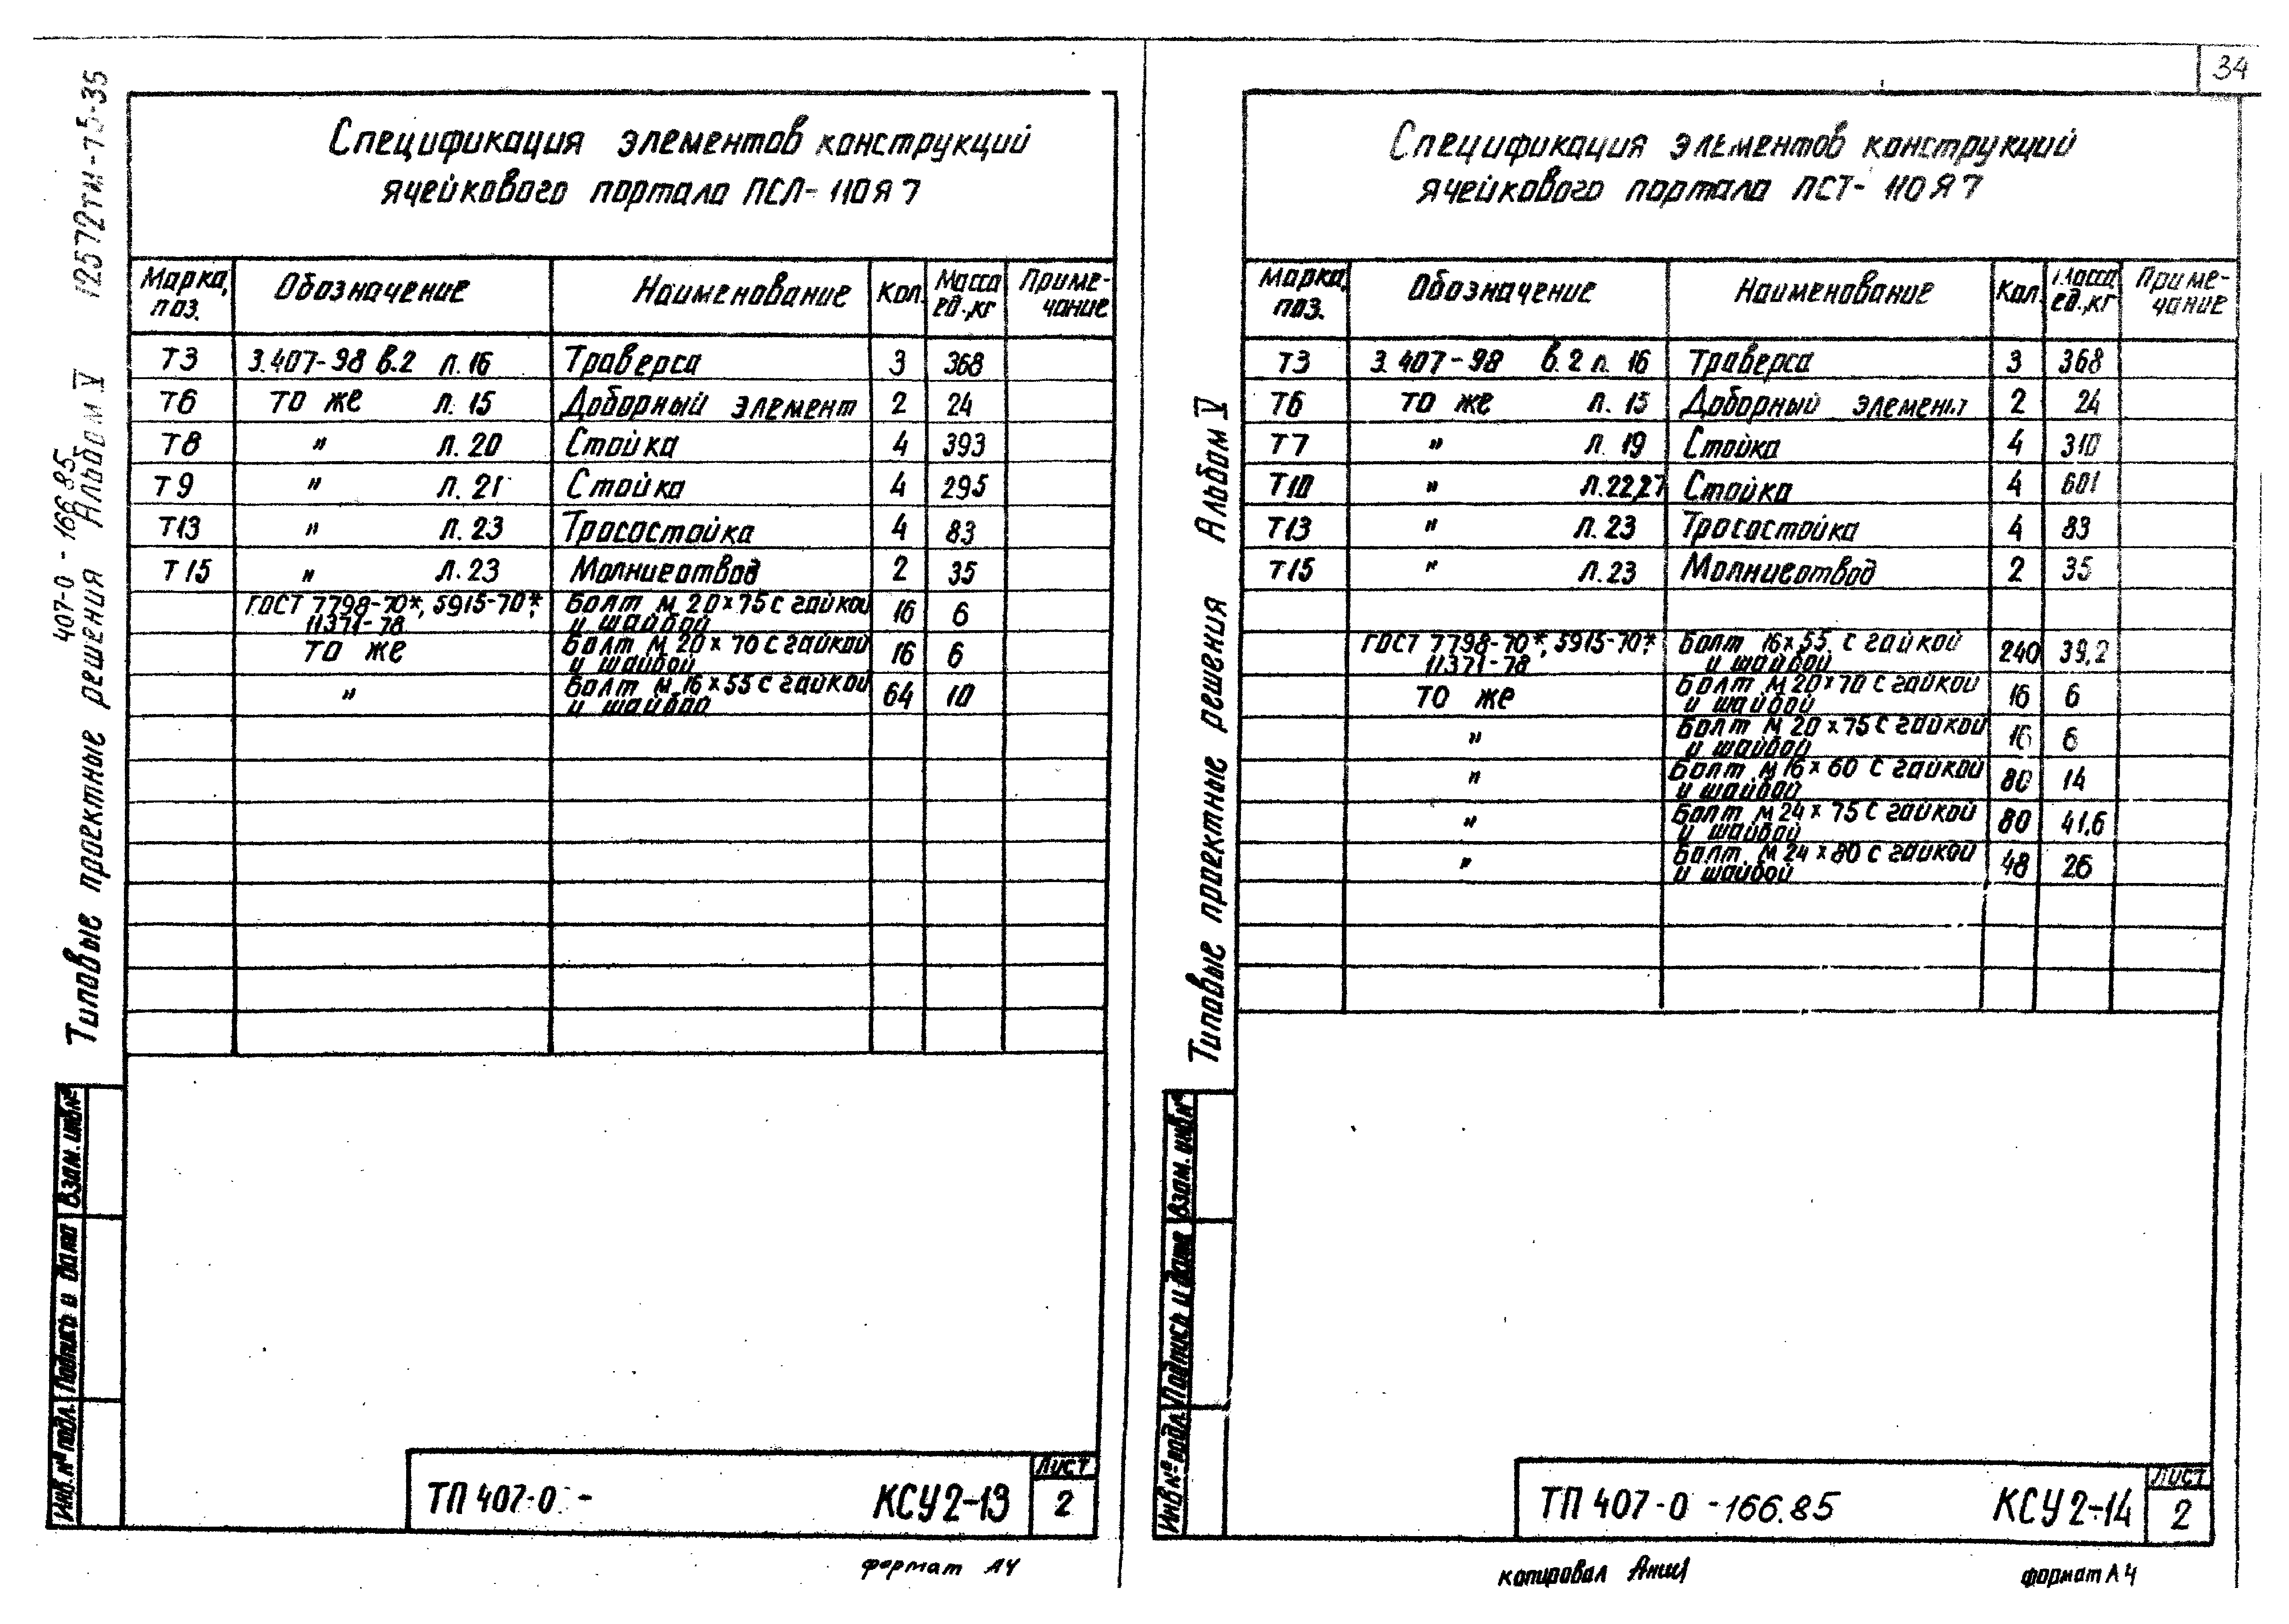 34
12572тм-т5-35
407-0-166.85
Типовые проектные решения Альбом V
Спецификация элементов конструкций
ячейкового портала ПСЛ-110Я7
Марка, поз. Обозначение Наименование Кол. Масса ед.,кг Примечание
Т3 3.407-98 в.2 л.16 Траверса 3 368
Т6 то же л.15 Доборный элемент 2 24
Т8 " л.20 Стойка 4 393
Т9 " л.21 Стойка 4 295
Т13 " л.23 Тросостойка 4 83
Т15 " л.23 Молниеотвод 2 35
ГОСТ 7798-70*, 5915-70*, 11371-78 Болт м 20×75 с гайкой и шайбой 16 6
то же Болт м 20×70 с гайкой и шайбой 16 6
" Болт м 16×55 с гайкой и шайбой 64 10
Инв.№ подл. Подпись и дата Взам. инв.№
ТП 407-0 - КСУ2-13
Лист
2
формат А4
Типовые проектные решения Альбом V
Спецификация элементов конструкций
ячейкового портала ПСТ-110Я7
Марка, поз. Обозначение Наименование Кол. Масса ед.,кг Примечание
Т3 3.407-98 в.2 л.16 Траверса 3 368
Т6 то же л.15 Доборный элемент 2 24
Т7 " л.19 Стойка 4 310
Т10 " л.22,27 Стойка 4 601
Т13 " л.23 Тросостойка 4 83
Т15 " л.23 Молниеотвод 2 35
ГОСТ 7798-70*, 5915-70*, 11371-78 Болт 16×55 с гайкой и шайбой 240 39,2
то же Болт м 20×70 с гайкой и шайбой 16 6
" Болт м 20×75 с гайкой и шайбой 16 6
" Болт м 16×60 с гайкой и шайбой 80 14
" Болт м 24×75 с гайкой и шайбой 80 41,6
" Болт м 24×80 с гайкой и шайбой 48 26
Инв.№ подл. Подпись и дата Взам. инв.№
ТП 407-0 -166.85 КСУ2-14
Лист
2
копировал
формат А4